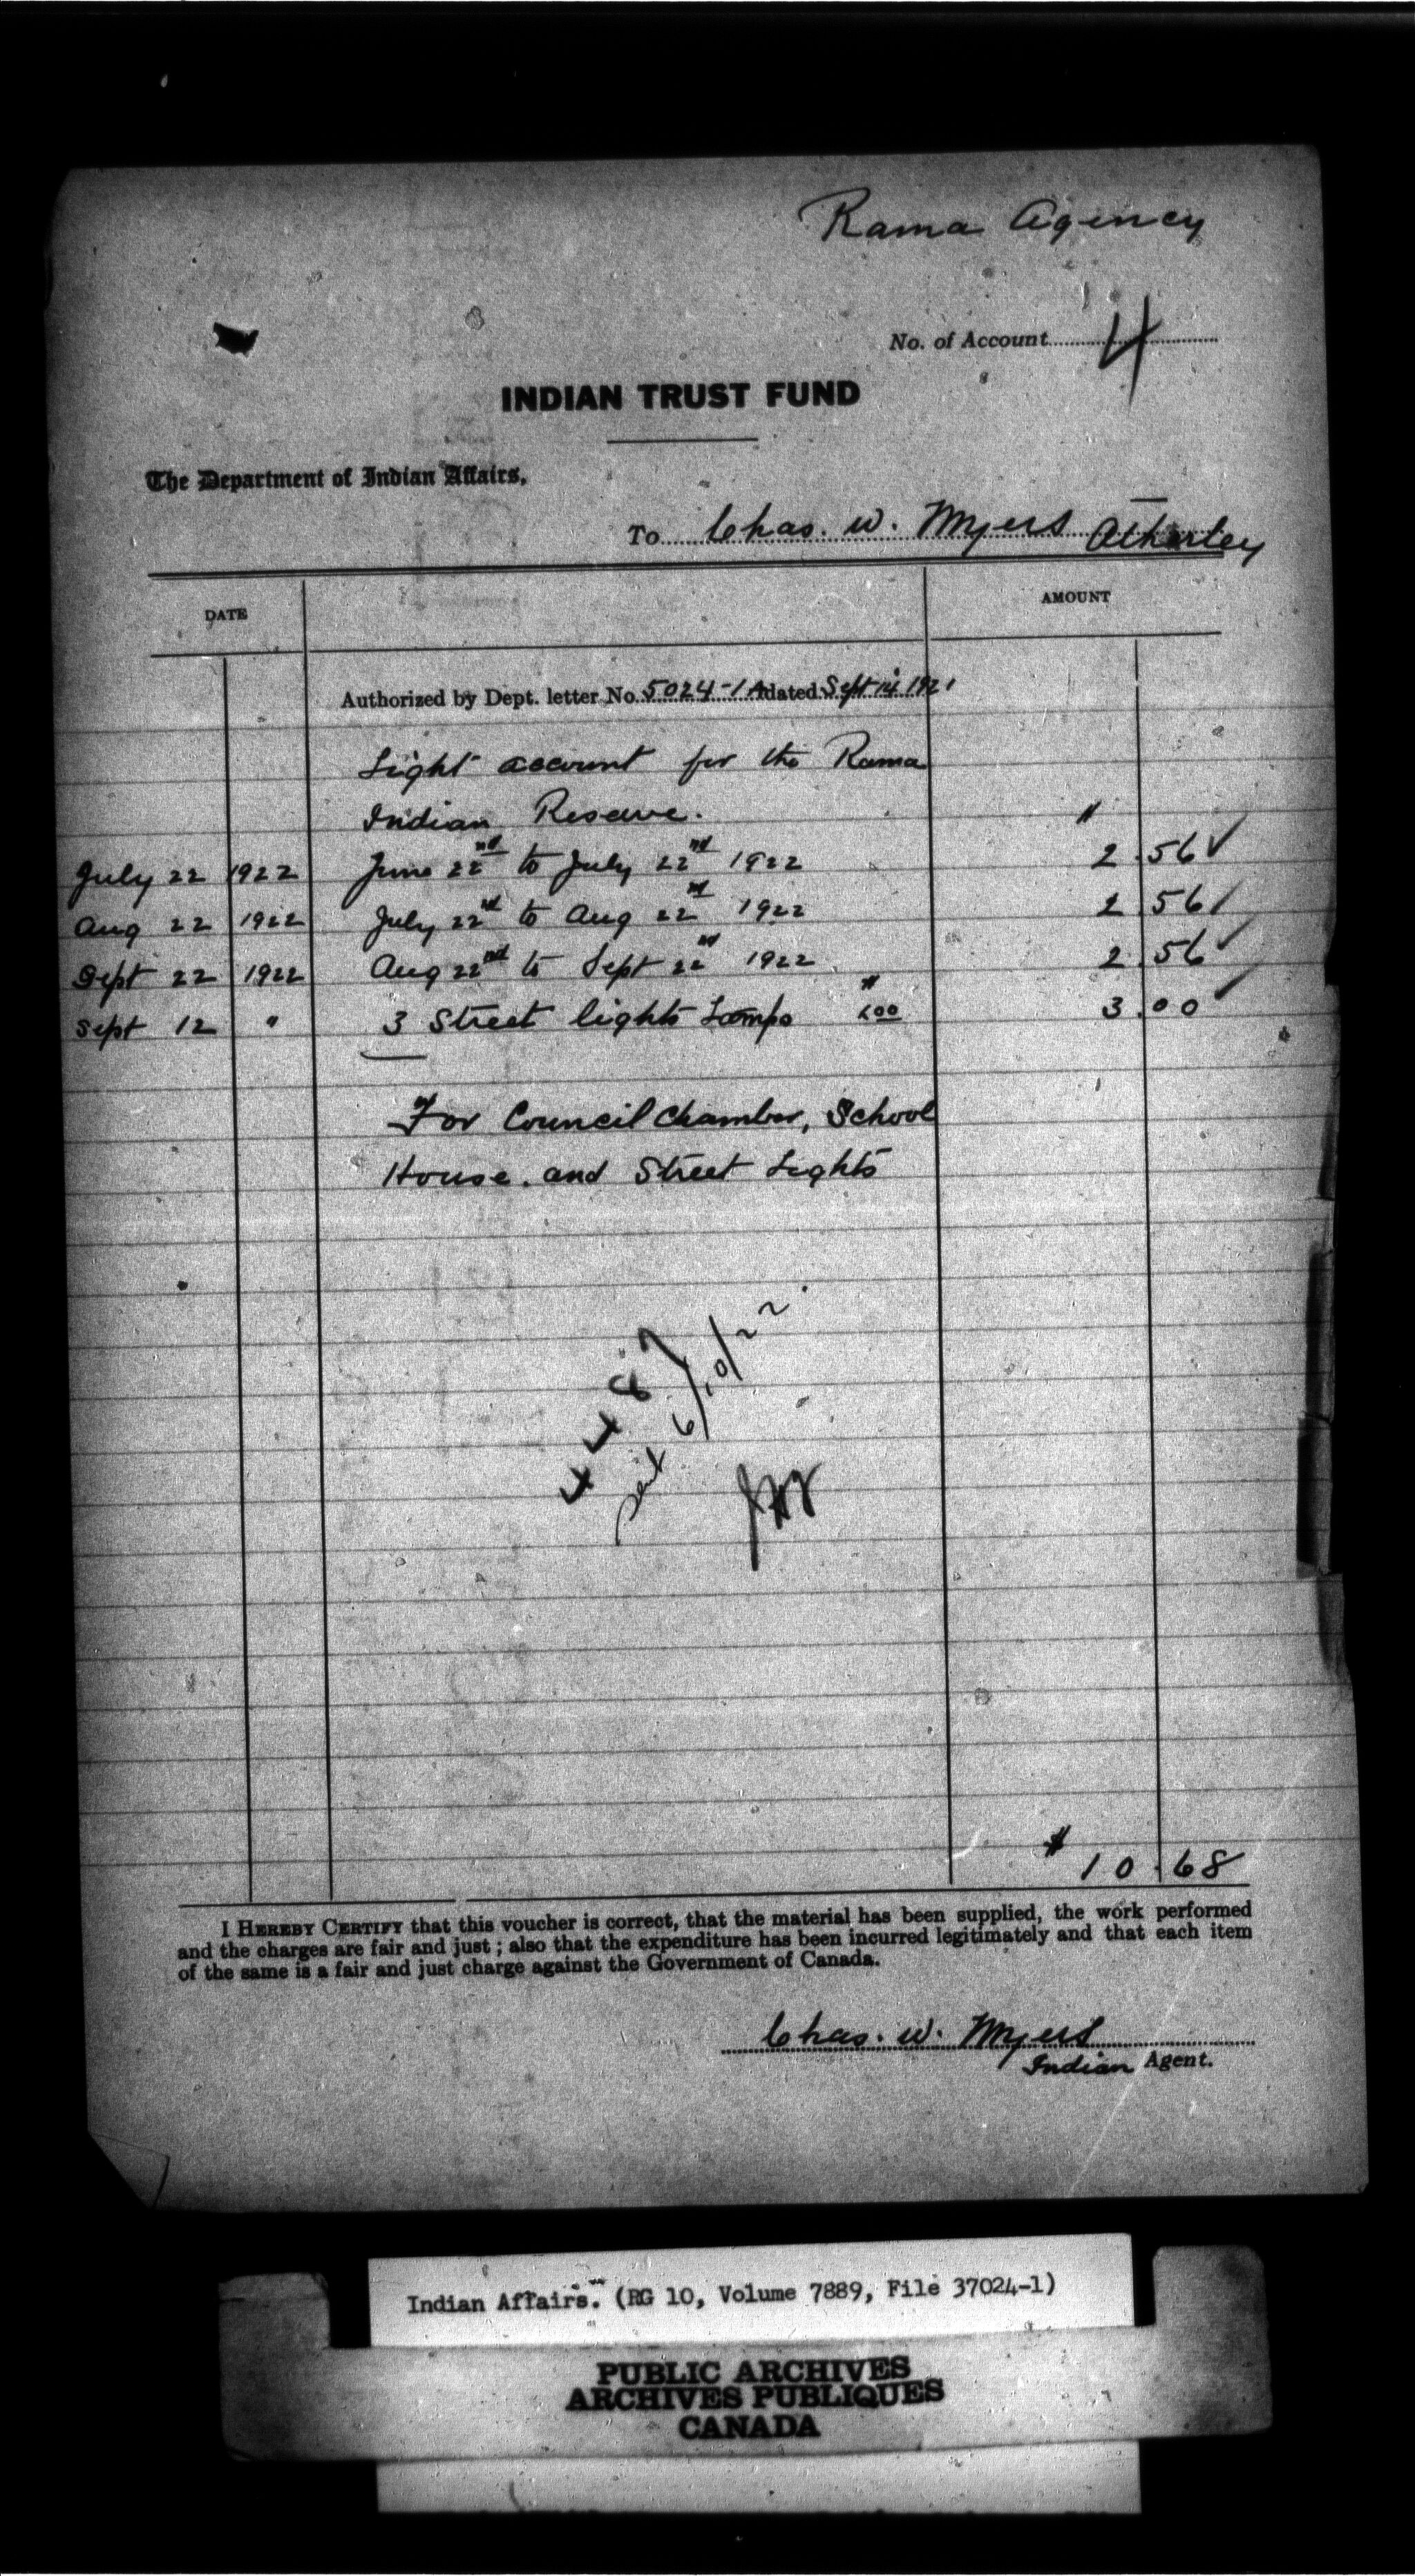 Rama Agency
No. of Account 4
INDIAN TRUST FUND
The Department of Indian Affairs,
To Chas. W. Myers Atherley
DATE AMOUNT
Authorized by Dept. letter No. 5024-1A dated Sept 14 1921
Light account for the Rama
Indian Reserve. $
July 22 1922 June 22nd to July 22nd 1922 2.56 ✓
Aug 22 1922 July 22nd to Aug 22nd 1922 2.56 ✓
Sept 22 1922 Aug 22nd to Sept 22nd 1922 2.56 ✓
Sept 12 " 3 Street lights Lamps $1.00 3.00 ✓
For Council Chamber, School
House. and Street Lights
6/10/22
$10.68
I HEREBY CERTIFY that this voucher is correct, that the material has been supplied, the work performed
and the charges are fair and just; also that the expenditure has been incurred legitimately and that each item
of the same is a fair and just charge against the Government of Canada.
Chas. W. Myers
Indian Agent.
Indian Affairs. (RG 10, Volume 7889, File 37024-1)
PUBLIC ARCHIVES
ARCHIVES PUBLIQUES
CANADA